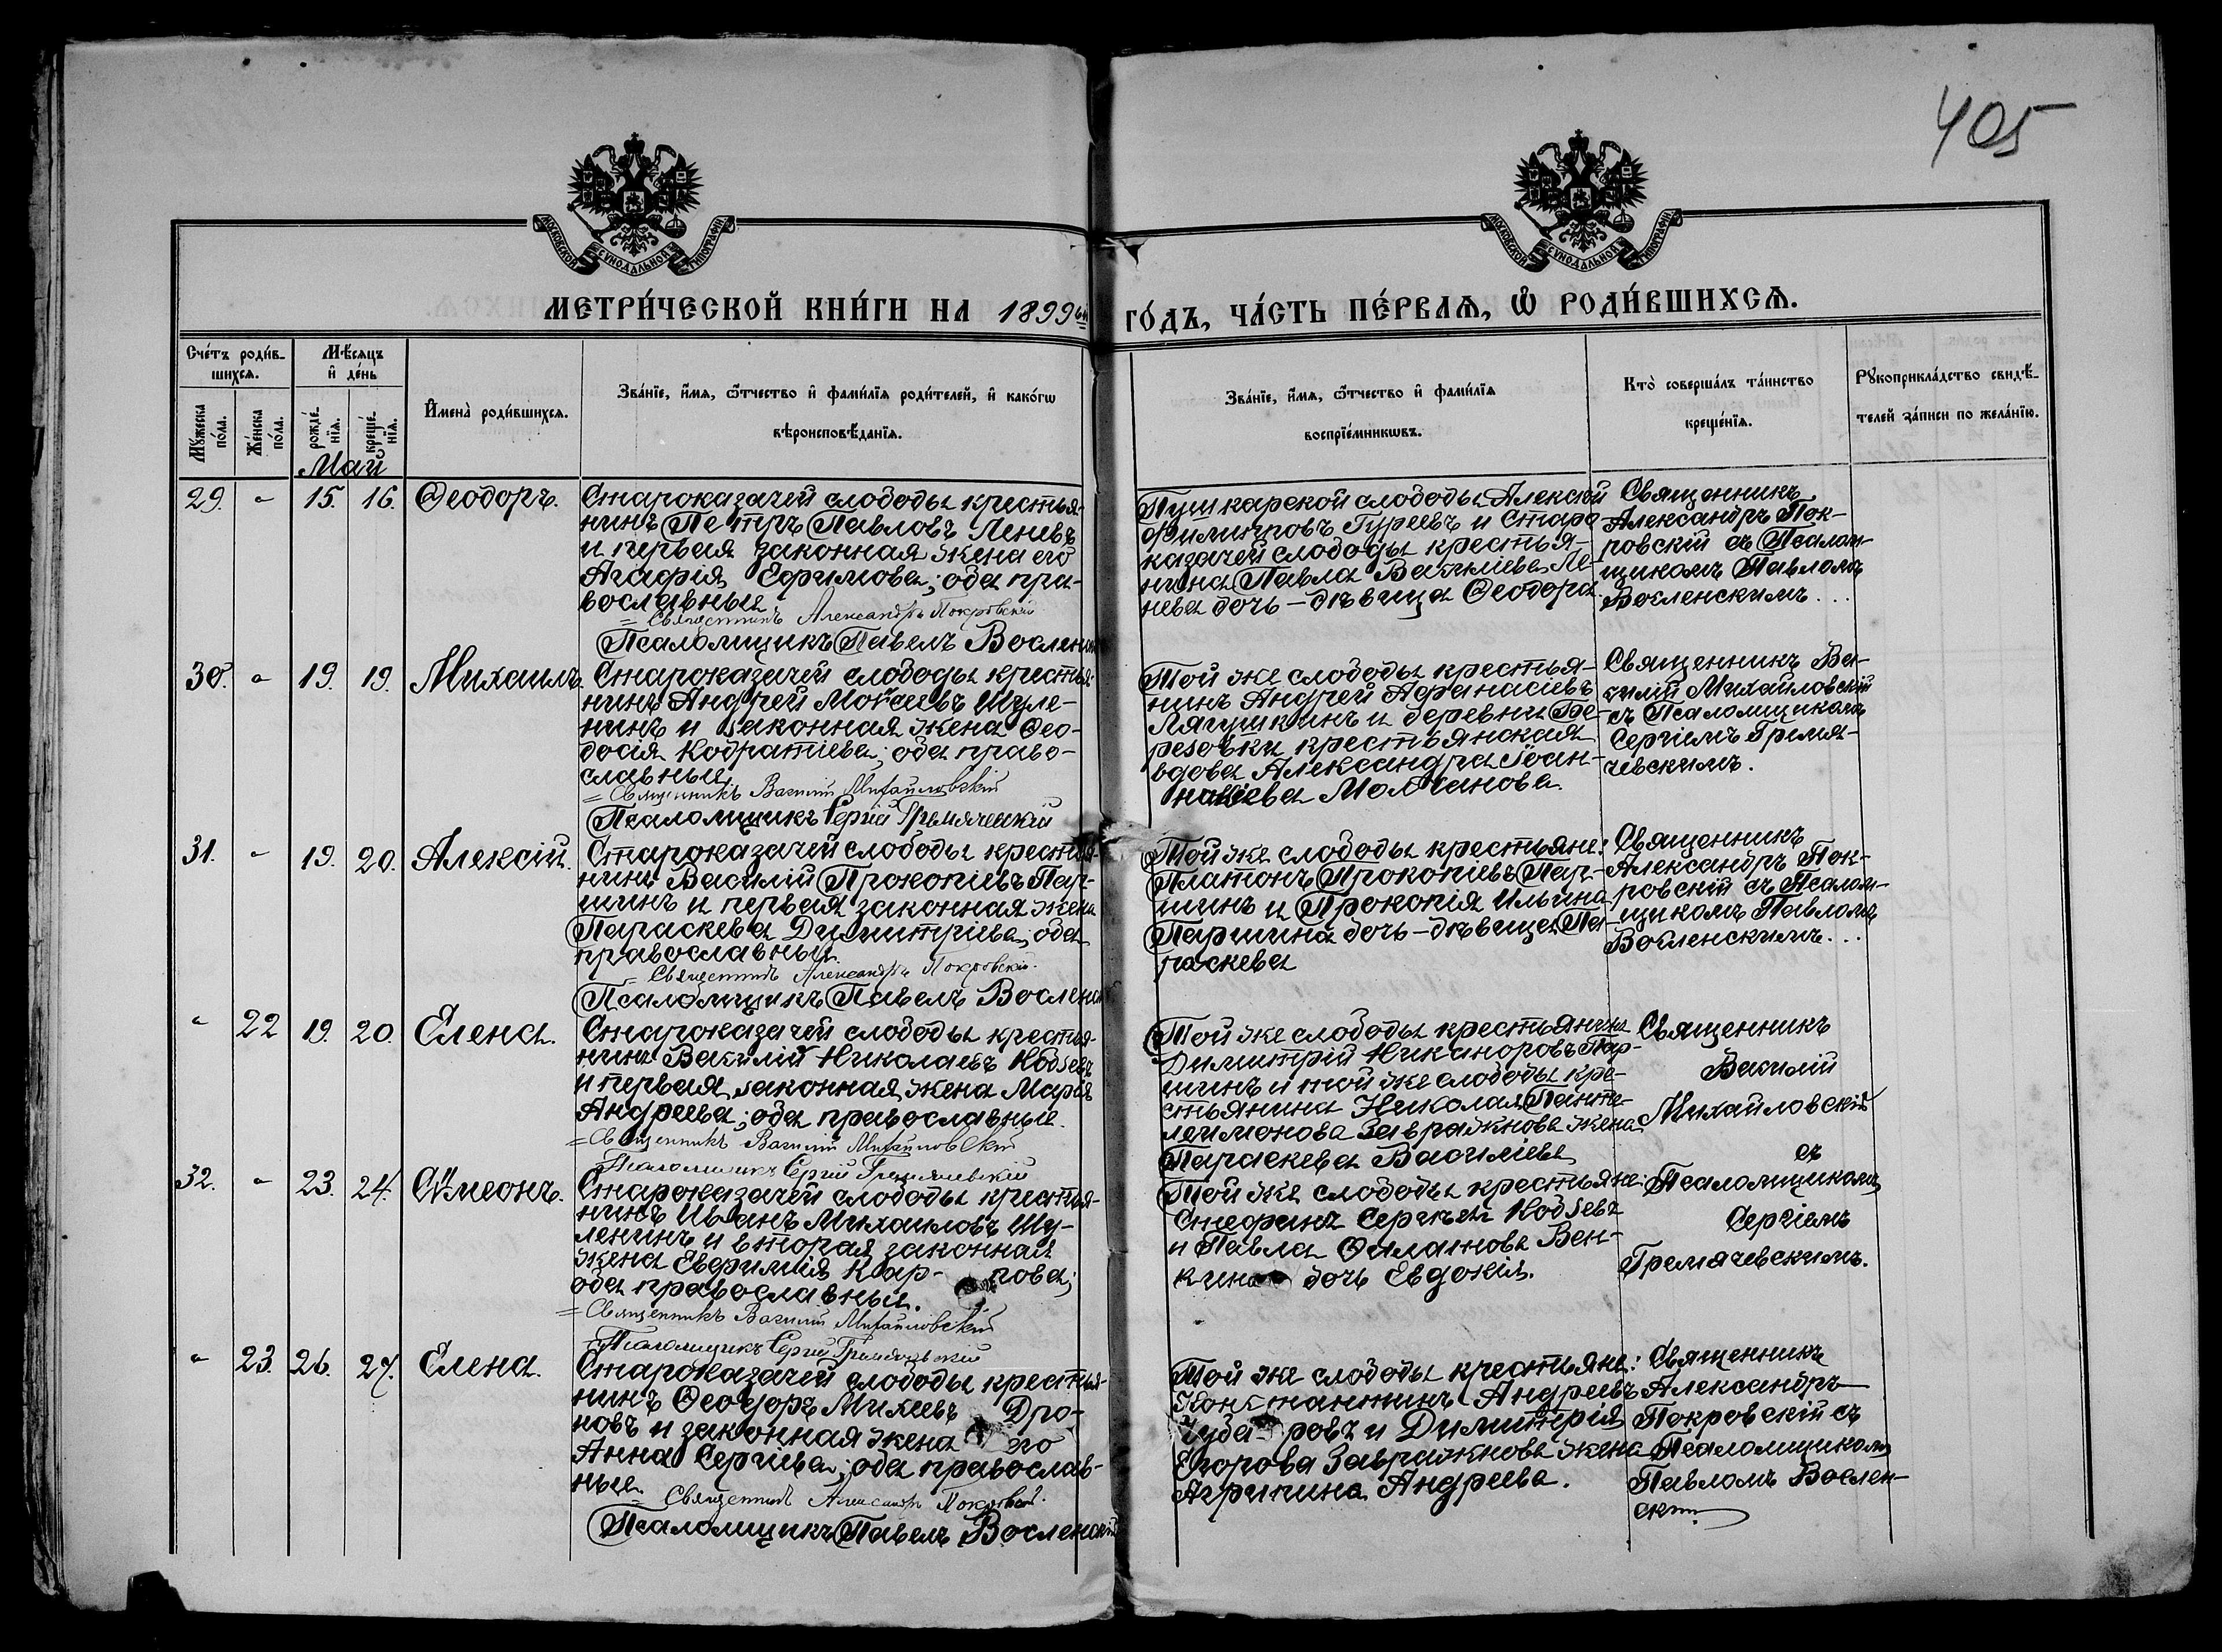 405
МОСКОВСКОЙ СѴНОДАЛЬНОЙ ТИПОГРАФІИ
МОСКОВСКОЙ СѴНОДАЛЬНОЙ ТИПОГРАФІИ
МЕТРИ́ЧЕСКОЙ КНИ́ГИ НА 1899
ГО́ДЪ, ЧА́СТЬ ПЕ́РВАѦ, Ѽ РОДИ́ВШИХСѦ.
Сче́тъ роди́в-
шихсѧ.
Мꙋжеска по́ла.
Же́нска по́ла.
Мѣ́сѧцъ
и҆ де́нь
рожде́-
нїѧ.
креще́-
нїѧ.
И҆мена̀ роди́вшихсѧ.
Зва́нїе, и҆́мѧ, ѻ҆́тчество и҆ фами́лїѧ роди́телей, и҆ како́гѡ
вѣроисповѣ́данїѧ.
Зва́нїе, и҆́мѧ, ѻ҆́тчество и҆ фами́лїѧ
воспрїе́мникѡвъ.
Кто̀ соверша́лъ та́инство
креще́нїѧ.
Рꙋкоприкла́дство свидѣ́-
телей за́писи по жела́нїю.
Май
29. " 15. 16. Ѳеодоръ.
Староказачей слободы крестья-
нинъ Петръ Павловъ Леневъ
и первая законная жена его
Агафія Ефимова; оба пра-
вославные
= Священникъ Александръ Покровскій
Псаломщикъ Павелъ Вослен
Пушкарской слободы Алексѣй
Филипповъ Гуреевъ и Старо-
казачей слободы крестья-
нина Павла Васильева Ле-
нева дочь-дѣвица Ѳеодора
Священникъ
Александръ Пок-
ровскій съ Псалом-
щикомъ Павломъ
Восленскимъ...
30. " 19. 19. Михаилъ.
Староказачей слободы крестья-
нинъ Андрей Моѵсеевъ Шуле-
нинъ и законная жена Ѳео-
досія Кодратіева; оба право-
славные
= Священникъ Василій Михайловскій
Псаломщикъ Сергій Гремячевскій
Той же слободы крестья-
нинъ Андрей Афанасіевъ
Лягушкинъ и деревни Бе-
резовки крестьянская
вдова Александра Іоан-
Молчанова.
Священникъ Ва-
силій Михайловскій
съ Псаломщикомъ
Сергіемъ Гремя-
чевскимъ.
31. " 19. 20. Алексій.
Староказачей слободы крестья-
нинъ Василій Прокопіевъ Пар-
шинъ и первая законная жена
Параскева Димитріева; оба
православные
= Священникъ Александръ Покровскій.
Псаломщикъ Павелъ Вослен
Той же слободы крестьяне:
Платонъ Прокопіевъ Пар-
шинъ и Прокопія Ильина
Паршина дочь-дѣвица Па-
раскева
Священникъ
Александръ Пок-
ровскій съ Псалом-
щикомъ Павломъ
Восленскимъ...
" 22 19. 20. Елена.
Староказачей слободы крестья-
нинъ Василій Николаевъ Кобзевъ
и первая законная жена Марѳа
Андреева; оба православные.
= Священникъ Василій Михайловскій
Псаломщикъ Сергій Гремячевскій
Той же слободы крестьянинъ
Димитрій Никаноровъ Пар-
шинъ и той же слободы кре-
стьянина Николая Панте-
леимонова Завражнова жена
Параскева Васильева
Священникъ
Василій
Михайловскій
съ
Псаломщикомъ
Сергіемъ
Гремячевскимъ.
32. " 23. 24. Сѵмеонъ.
Староказачей слободы крестья-
нинъ Иванъ Михаиловъ Шу-
ленинъ и вторая законная
жена Евфимія Кар- пова;
оба православные.
= Священникъ Василій Михайловскій
Псаломщикъ Сергій Гремячевскій
Той же слободы крестьяне:
Стефанъ Сергѣевъ Кобзевъ
и Павла Филатова Вен-
кина дочь Евдокія.
" 23. 26. 27. Елена.
Староказачей слободы крестья-
нинъ Ѳеодоръ Михеевъ Дро-
новъ и законная жена его
Анна Сергіева; оба православ-
ные.
= Священникъ Александръ Покровскій.
Псаломщикъ Павелъ Восленскій
Той же слободы крестьяне:
Константинъ Андреевъ
Чуба- ровъ и Димитрія
Егорова Завражнова жена
Агрипина Андреева.
Священникъ
Александръ
Покровскій съ
Псаломщикомъ
Павломъ Вослен-
ским